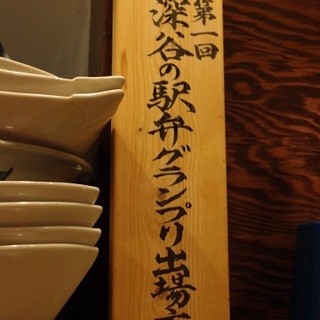 第一回
深谷の駅弁グランプリ出場